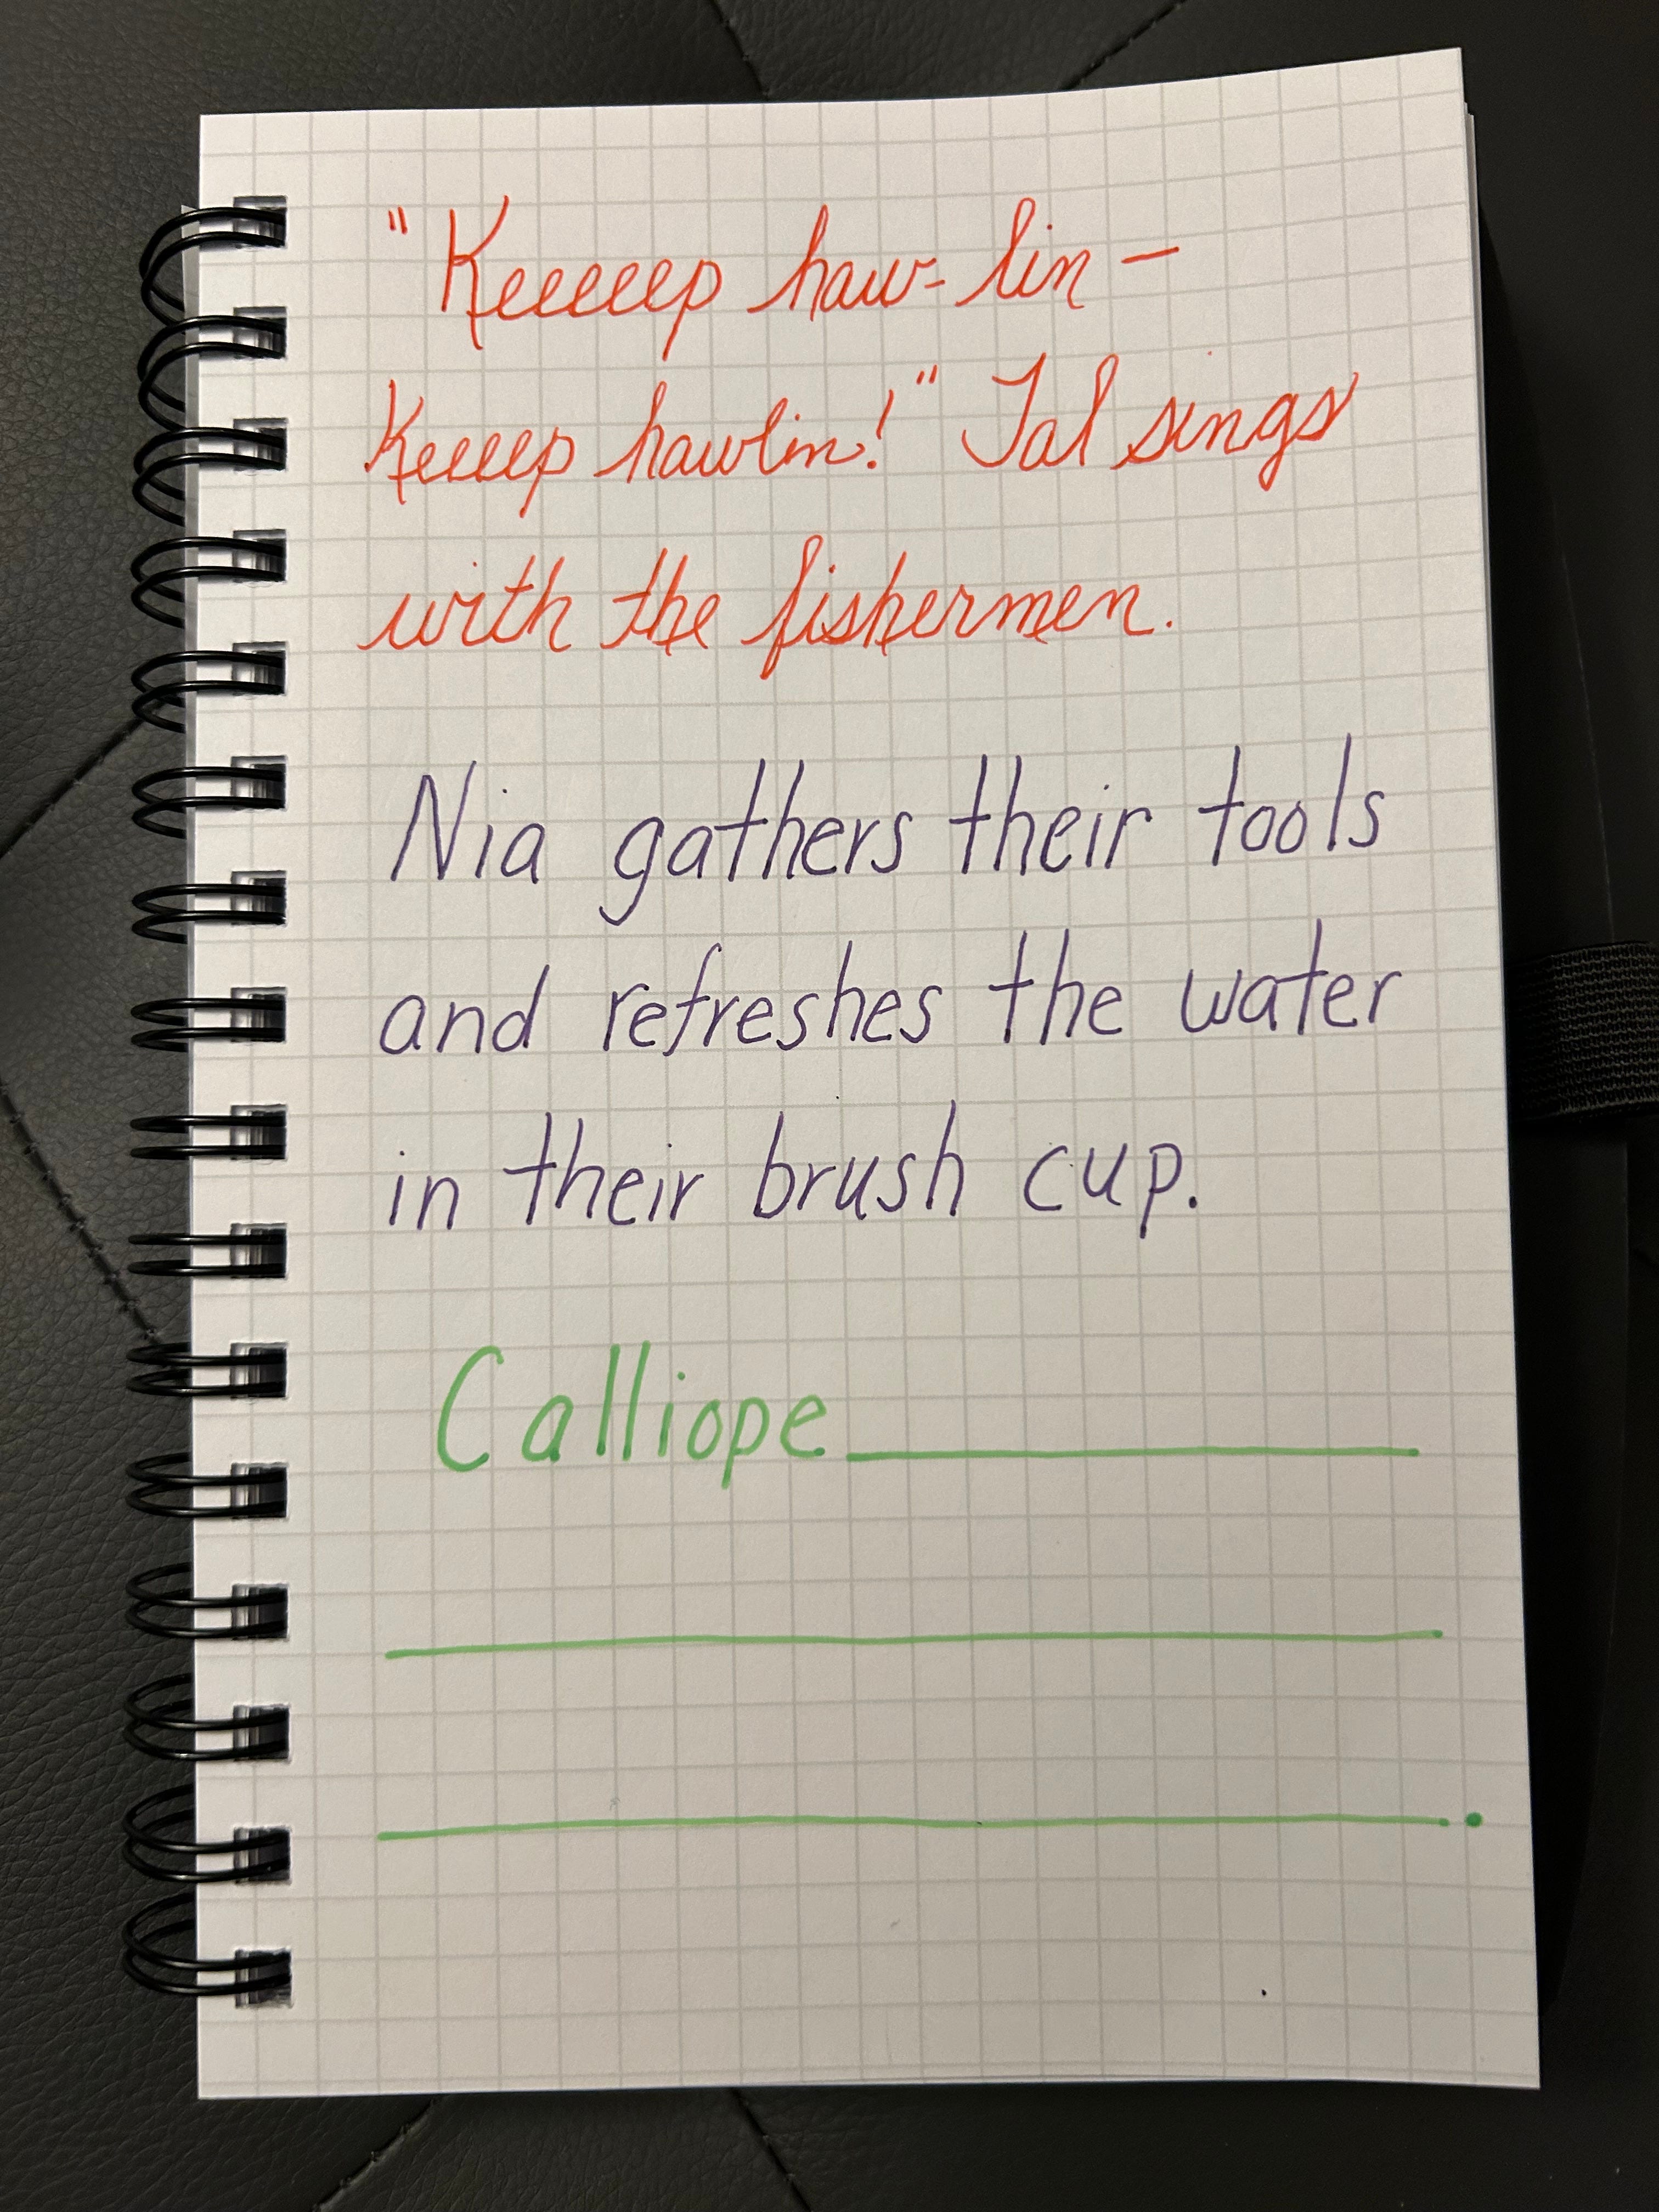 "Keeeeep haw-lin —
Keeeep hawlin!" Tal sings
with the fishermen.
Nia gathers their tools
and refreshes the water
in their brush cup.
Calliope______________
______________________
______________________.